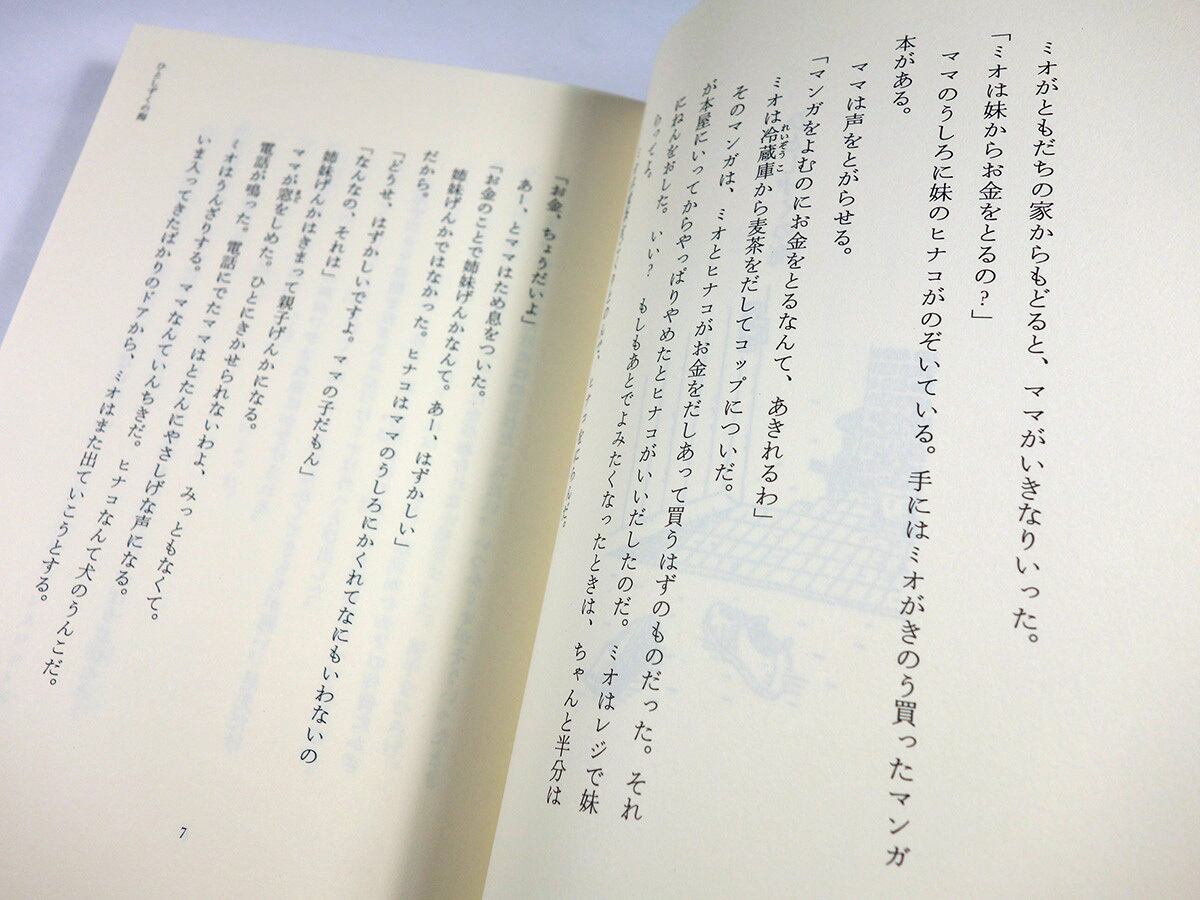 ミオがともだちの家からもどると、ママがいきなりいった。
「ミオは妹からお金をとるの?」
ママのうしろに妹のヒナコがのぞいている。手にはミオがきのう買ったマンガ
本がある。
ママは声をとがらせる。
「マンガをよむのにお金をとるなんて、あきれるわ」
ミオは冷蔵庫から麦茶をだしてコップについだ。
れいぞうこ
そのマンガは、ミオとヒナコがお金をだしあって買うはずのものだった。それ
が本屋にいってからやっぱりやめたとヒナコがいいだしたのだ。ミオはレジで妹
にねんをおした。いい? もしもあとでよみたくなったときは、ちゃんと半分は
ひとしずくの海
「お金、ちょうだいよ」
あー、とママはため息をついた。
「お金のことで姉妹げんかなんて。あー、はずかしい」
姉妹げんかではなかった。ヒナコはママのうしろにかくれてなにもいわないの
だから。
「どうせ、はずかしいですよ。ママの子だもん」
「なんなの、それは」
姉妹げんかはきまって親子げんかになる。
ママが窓をしめた。ひとにきかせられないわよ、みっともなくて。
まど
電話が鳴った。電話にでたママはとたんにやさしげな声になる。
ミオはうんざりする。ママなんていんちきだ。ヒナコなんて犬のうんこだ。
いま入ってきたばかりのドアから、ミオはまた出ていこうとする。
7